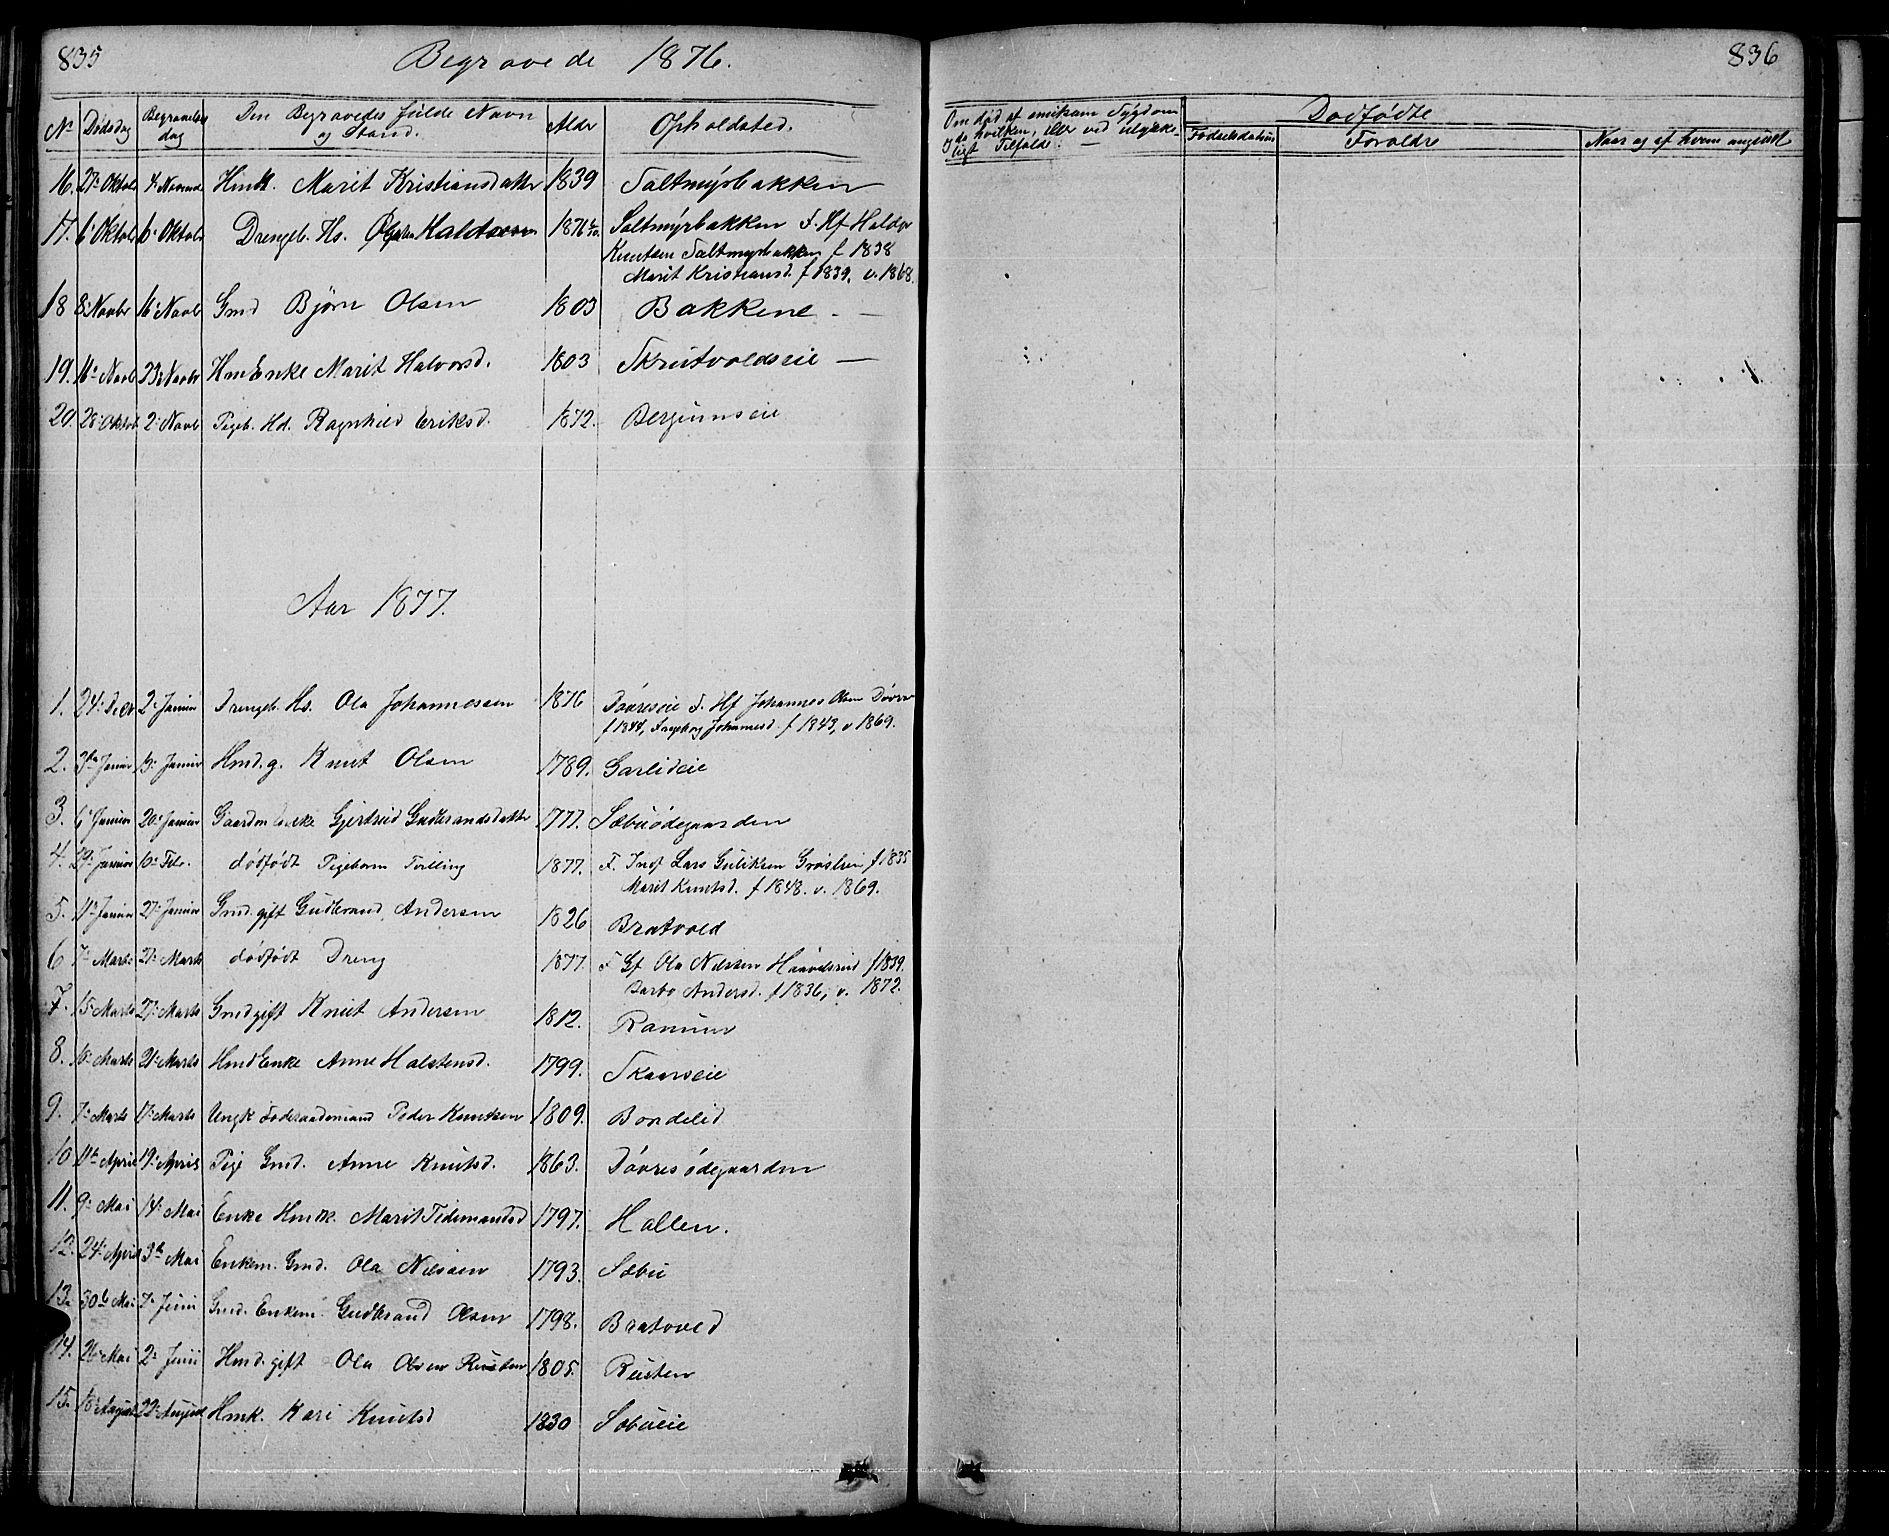 835
Begravede 1876.
No Dødsdag Begravelsesdag Den Begravedes fulde Navn og Stand. Alder Opholdsted.
16. 27de Oktob 4 Novemb Hmk. Marit Kristiansdatter 1839 Saltmyrbakken
17. 6 Oktob 6 Oktob Drengeb. Hs. Halvorsen 1876 Saltmyrbakken F. Hf Haldor
Knutsen Saltmyrbakken f 1838
Marit Kristiansd. f 1839. v. 1868.
18 8 Novbr 16 Novb Gmd Bjørn Olsen 1803 Bakkene. —
19. 16 Novb 23 Novbr Hm Enke Marit Halvorsd. 1803 Skrutvoldseie —
20 28 Oktob 2 Novb Pigeb. Hd. Ragnhild Eriksd. 1872. Bergumseie
Aar 1877.
1. 24 Decbr 2 Januar Drengeb. Hs. Ola Johannessen 1876 Dovreseie F. Hf Johannes Olsen Dovre
f 1844, Ingeborg Johannesd. f 1843, v 1869.
2. 3die Januar 13 Januar Hmd. g. Knut Olsen 1789. Garlideie
3. 6 Januar 20 Januar Gaardm Enke Gjertrud Gudbrandsdatter 1777. Sæbuødegaarden
4. 29 Januar 10 Feb. dødfødt Pigebarn Tvilling 1877. F. Lars Guliksen f 1835
Marit Knutsd. f 1848. v. 1869.
5. 11te Januar 27 Januar Gmd. gift Gudbrand Andersen 1826 Bratvold
6 7 Marts 27 Marts dødfødt Dreng 1877. F Gf Ola Nilssen f 1839.
Barbo Andersd. f 1836, v. 1872.
7. 15 Marts 27 Marts Gmd gift Knut Andersen 1812. Ranum
8. 16 Marts 21 Marts Hmd Enke Anne Halstensd. 1799. Skaarseie
9. 7 Marts 17 Marts Ungk Føderaadsmand Peder Knutsen 1809. Bondelid
10 11te April 19 April Pige Gmd. Anne Knutsd. 1863. Dovresødegaarden
11. 9 Mai 14 Mai Enke Hmk. Marit Tidemandsd 1797. Hallen.
12. 24 April 3die Mai Enkem. Gmd. Ola Nilssen 1793. Sæbu
13. 30te Mai 7 Juni Gmd. Enkem. Gudbrand Olsen 1798. Bratvold
14. 26 Mai 2 Juni Hmd. gift Ola Olsen Rusten 1805. Rusten
15. 18 August 22 August Hmk. Kari Knutsd 1830 Sæbueie
836
Om død af smitsom Sygdom og da hvilken, eller ved ulykkeligt Tilfælde. —
Dødfødte
Fødselsdatum Forældre Naar og af hvem angivet